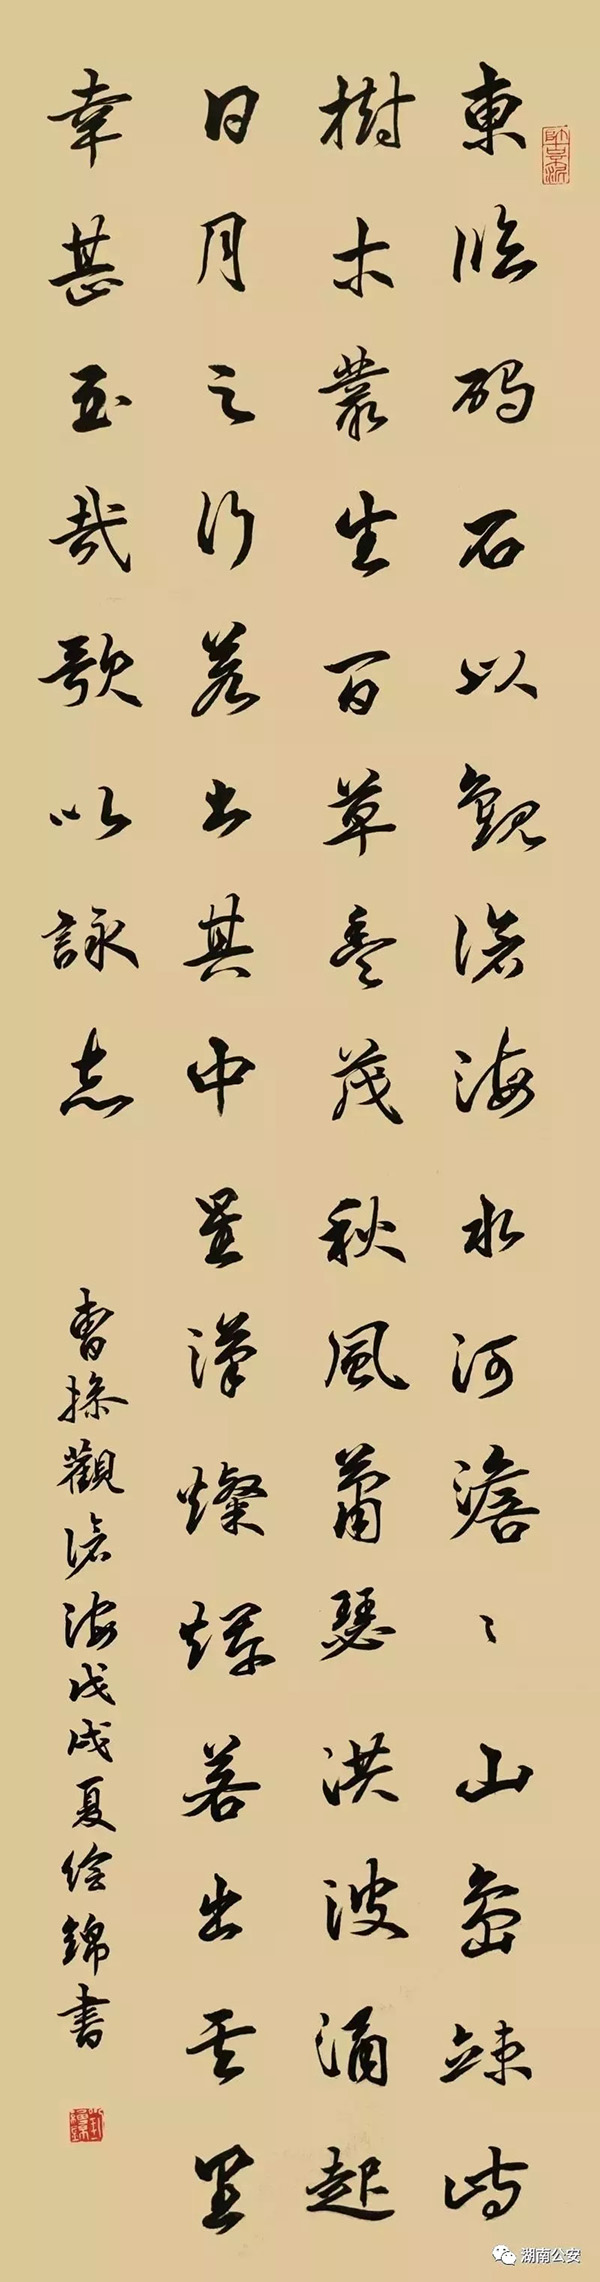 東臨碣石以觀滄海水河澹〻山島竦峙
樹木叢生百草豐茂秋風蕭瑟洪波涌起
日月之行若出其中星漢燦爛若出其里
幸甚至哉歌以詠志
曹操觀滄海戊戌夏绘錦書
湖南公安